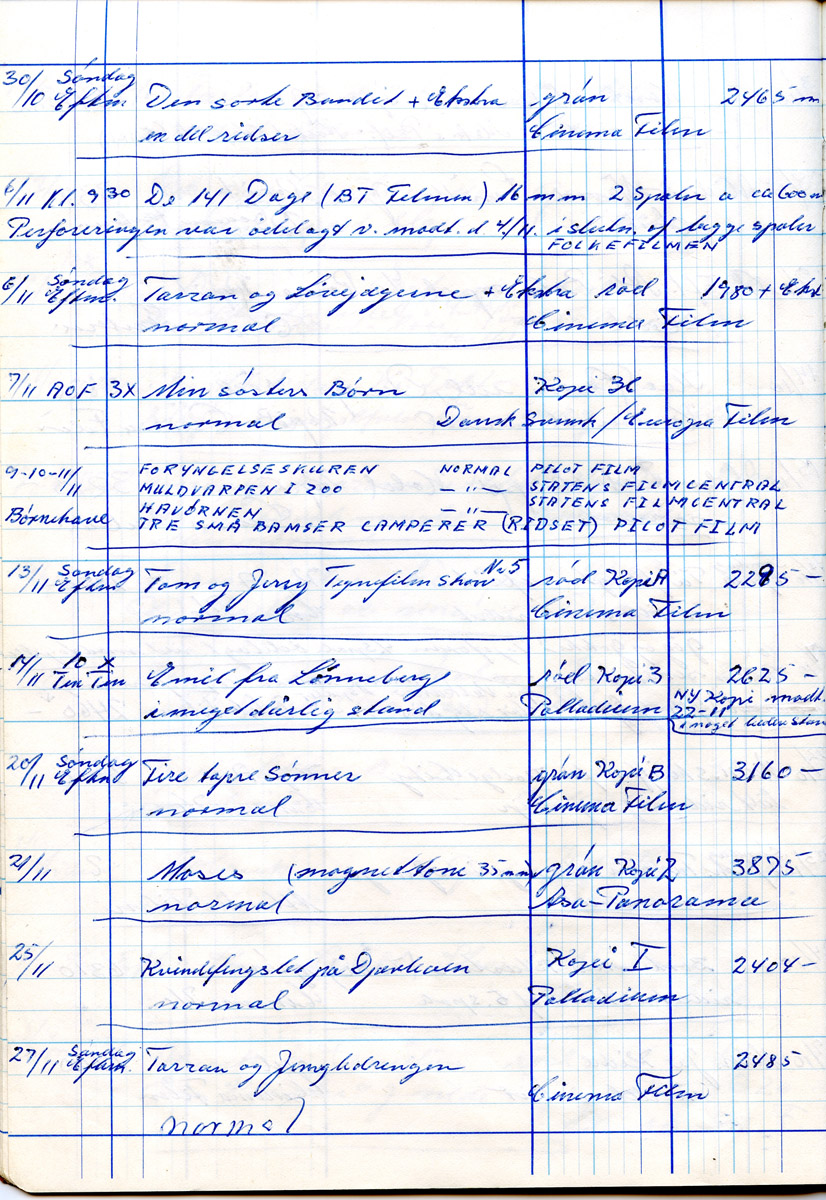 30/10 Søndag Eftm. Den sorte Bandit + Ekstra grøn 2465 m
en del ridser Cinema Film
6/11 Kl. 9 30 De 141 Dage (BT Filmen) 16 mm 2 Spoler a ca 600 m
Perforeringen var ödelagt v. modt. d 4/11. i slutn. af begge spoler
FOLKEFILMEN
6/11 Søndag Eftm. Tarzan og Løvejægerne + Ekstra rød 1980 + Ekst
normal Cinema Film
7/11 AOF 3X Min søsters Børn Kopi 36
normal Dansk Svensk / Europa Film
9-10-11/11 FORYNGELSESKUREN NORMAL PILOT FILM
MULDVARPEN I ZOO — " — STATENS FILMCENTRAL
HAVÖRNEN — " — STATENS FILMCENTRAL
Børnehave TRE SMÅ BAMSER CAMPERER (RIDSET) PILOT FILM
13/11 Søndag Eftm Tom og Jerry Tegnefilm Show Nr 5 rød Kopi A 2285 —
normal Cinema Film
14/11 10 X Tin Tin Emil fra Lønneberg rød Kopi 3 2625 —
i meget dårlig stand Palladium NY Kopi modt.
22-11
i meget bedre stan
20/11 Søndag Eftm Fire tapre Sønner grøn Kopi B 3160 —
normal Cinema Film
21/11 Moses (magnettone 35 mm) grøn Kopi 2 3875
normal Asa-Panorama
25/11 Kvindefængslet på Djævleøen Kopi I 2404 —
normal Palladium
27/11 Søndag Eftm. Tarzan og Jungledrengen 2485
Cinema Film
normal